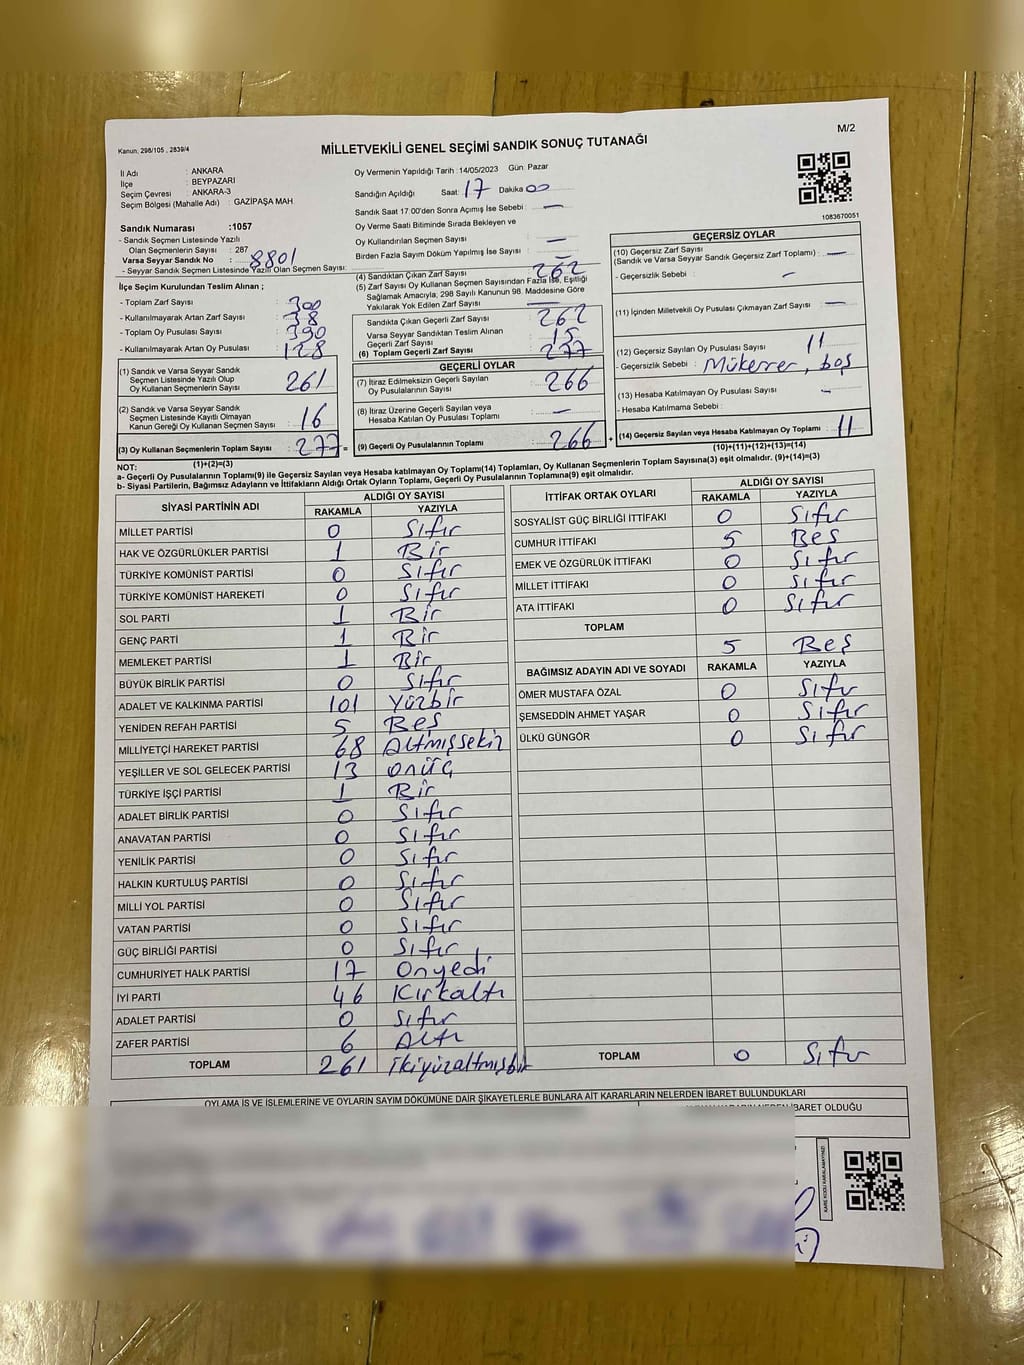 M/2
Kanun: 298/105 , 2839/4
MİLLETVEKİLİ GENEL SEÇİMİ SANDIK SONUÇ TUTANAĞI
İl Adı : ANKARA
İlçe : BEYPAZARI
Seçim Çevresi : ANKARA-3
Seçim Bölgesi (Mahalle Adı) : GAZİPAŞA MAH
Sandık Numarası :1057
- Sandık Seçmen Listesinde Yazılı
Olan Seçmenlerin Sayısı : 287
Varsa Seyyar Sandık No : 8801
- Seyyar Sandık Seçmen Listesinde Yazılı Olan Seçmen Sayısı:
İlçe Seçim Kurulundan Teslim Alınan ;
- Toplam Zarf Sayısı : 300
- Kullanılmayarak Artan Zarf Sayısı : 38
- Toplam Oy Pusulası Sayısı : 390
- Kullanılmayarak Artan Oy Pusulası : 128
(1) Sandık ve Varsa Seyyar Sandık
Seçmen Listesinde Yazılı Olup
Oy Kullanan Seçmenlerin Sayısı 261
(2) Sandık ve Varsa Seyyar Sandık
Seçmen Listesinde Kayıtlı Olmayan
Kanun Gereği Oy Kullanan Seçmen Sayısı 16
(3) Oy Kullanan Seçmenlerin Toplam Sayısı : 277 =
(1)+(2)=(3)
Oy Vermenin Yapıldığı Tarih :14/05/2023 Gün: Pazar
Sandığın Açıldığı Saat: 17 Dakika 00
Sandık Saat 17:00'den Sonra Açımış İse Sebebi : —
Oy Verme Saati Bitiminde Sırada Bekleyen ve
Oy Kullandırılan Seçmen Sayısı —
Birden Fazla Sayım Döküm Yapılmış İse Sayısı : —
(4) Sandıktan Çıkan Zarf Sayısı 262
(5) Zarf Sayısı Oy Kullanan Seçmen Sayısından Fazla İse, Eşitliği
Sağlamak Amacıyla, 298 Sayılı Kanunun 98. Maddesine Göre
Yakılarak Yok Edilen Zarf Sayısı —
Sandıkta Çıkan Geçerli Zarf Sayısı : 262
Varsa Seyyar Sandıktan Teslim Alınan
Geçerli Zarf Sayısı : 15
(6) Toplam Geçerli Zarf Sayısı : 277
GEÇERLİ OYLAR
(7) İtiraz Edilmeksizin Geçerli Sayılan
Oy Pusulalarının Sayısı : 266
(8) İtiraz Üzerine Geçerli Sayılan veya
Hesaba Katılan Oy Pusulası Toplamı : —
(9) Geçerli Oy Pusulalarının Toplamı : 266 +
1083670051
GEÇERSİZ OYLAR
(10) Geçersiz Zarf Sayısı
(Sandık ve Varsa Seyyar Sandık Geçersiz Zarf Toplamı) : —
- Geçersizlik Sebebi : —
(11) İçinden Milletvekili Oy Pusulası Çıkmayan Zarf Sayısı : —
(12) Geçersiz Sayılan Oy Pusulası Sayısı : 11
- Geçersizlik Sebebi : Mükerrer, boş
(13) Hesaba Katılmayan Oy Pusulası Sayısı : —
- Hesaba Katılmama Sebebi :
(14) Geçersiz Sayılan veya Hesaba Katılmayan Oy Toplamı : 11
(10)+(11)+(12)+(13)=(14)
NOT:
a- Geçerli Oy Pusulalarının Toplamı(9) ile Geçersiz Sayılan veya Hesaba katılmayan Oy Toplamı(14) Toplamları, Oy Kullanan Seçmenlerin Toplam Sayısına(3) eşit olmalıdır. (9)+(14)=(3)
b- Siyasi Partilerin, Bağımsız Adayların ve İttifakların Aldığı Ortak Oyların Toplamı, Geçerli Oy Pusulalarının Toplamına(9) eşit olmalıdır.
SİYASİ PARTİNİN ADI ALDIĞI OY SAYISI
RAKAMLA YAZIYLA
MİLLET PARTİSİ 0 Sıfır
HAK VE ÖZGÜRLÜKLER PARTİSİ 1 Bir
TÜRKİYE KOMÜNİST PARTİSİ 0 Sıfır
TÜRKİYE KOMÜNİST HAREKETİ 0 Sıfır
SOL PARTİ 1 Bir
GENÇ PARTİ 1 Bir
MEMLEKET PARTİSİ 1 Bir
BÜYÜK BİRLİK PARTİSİ 0 Sıfır
ADALET VE KALKINMA PARTİSİ 101 Yüzbir
YENİDEN REFAH PARTİSİ 5 Beş
MİLLİYETÇİ HAREKET PARTİSİ 68 Altmışsekiz
YEŞİLLER VE SOL GELECEK PARTİSİ 13 onüç
TÜRKİYE İŞÇİ PARTİSİ 1 Bir
ADALET BİRLİK PARTİSİ 0 Sıfır
ANAVATAN PARTİSİ 0 Sıfır
YENİLİK PARTİSİ 0 Sıfır
HALKIN KURTULUŞ PARTİSİ 0 Sıfır
MİLLİ YOL PARTİSİ 0 Sıfır
VATAN PARTİSİ 0 Sıfır
GÜÇ BİRLİĞİ PARTİSİ 0 Sıfır
CUMHURİYET HALK PARTİSİ 17 Onyedi
İYİ PARTİ 46 Kırkaltı
ADALET PARTİSİ 0 Sıfır
ZAFER PARTİSİ 6 Altı
TOPLAM 261 İkiyüzaltmışbir
İTTİFAK ORTAK OYLARI ALDIĞI OY SAYISI
RAKAMLA YAZIYLA
SOSYALİST GÜÇ BİRLİĞİ İTTİFAKI 0 Sıfır
CUMHUR İTTİFAKI 5 Beş
EMEK VE ÖZGÜRLÜK İTTİFAKI 0 Sıfır
MİLLET İTTİFAKI 0 Sıfır
ATA İTTİFAKI 0 Sıfır
TOPLAM 5 Beş
BAĞIMSIZ ADAYIN ADI VE SOYADI RAKAMLA YAZIYLA
ÖMER MUSTAFA ÖZAL 0 Sıfır
ŞEMSEDDİN AHMET YAŞAR 0 Sıfır
ÜLKÜ GÜNGÖR 0 Sıfır
TOPLAM 0 Sıfır
OYLAMA İŞ VE İŞLEMLERİNE VE OYLARIN SAYIM DÖKÜMÜNE DAİR ŞİKAYETLERLE BUNLARA AİT KARARLARIN NELERDEN İBARET BULUNDUKLARI
İBARET OLDUĞU
KARE KODU KARALAMAYINIZ